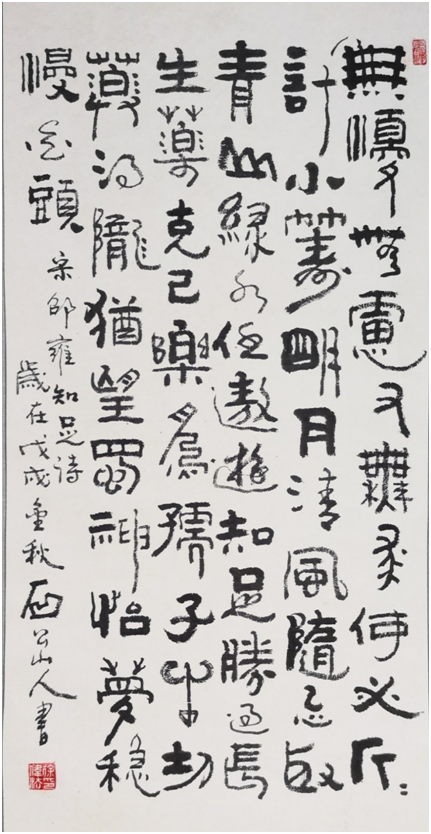 無懮無慮又無求何必斤々
計小籌明月清風隨意取
青山綠水任遨遊知足勝過長
生藥克己樂為孺子牛切
莫得隴猶望蜀神怡夢穩
慢白頭 宋邵雍知足詩
歲在戊戌金秋石公山人書